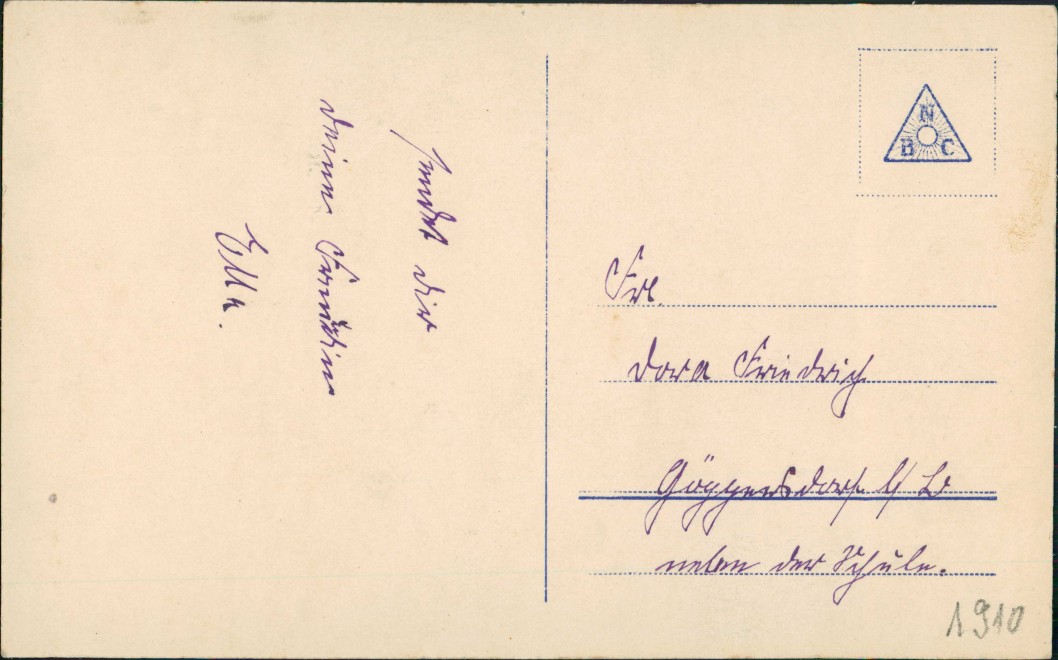 sendet dir
deine Freundin
Ella.
N
B C
Frl.
Dora Friedrich
Göppersdorf b/ Bu
neben der Schule.
1910